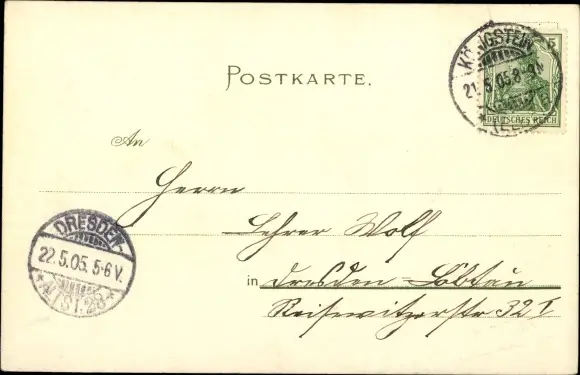 POSTKARTE.
KÖNIGSTEIN
21. 5. 05. 8-9N
5
DEUTSCHES REICH
An
Herrn
Lehrer Wolf
in Dresden-Löbtau
Reisewitzerstr 32 I
DRESDEN-
22.5.05. 5-6 V.
ALTST. 28